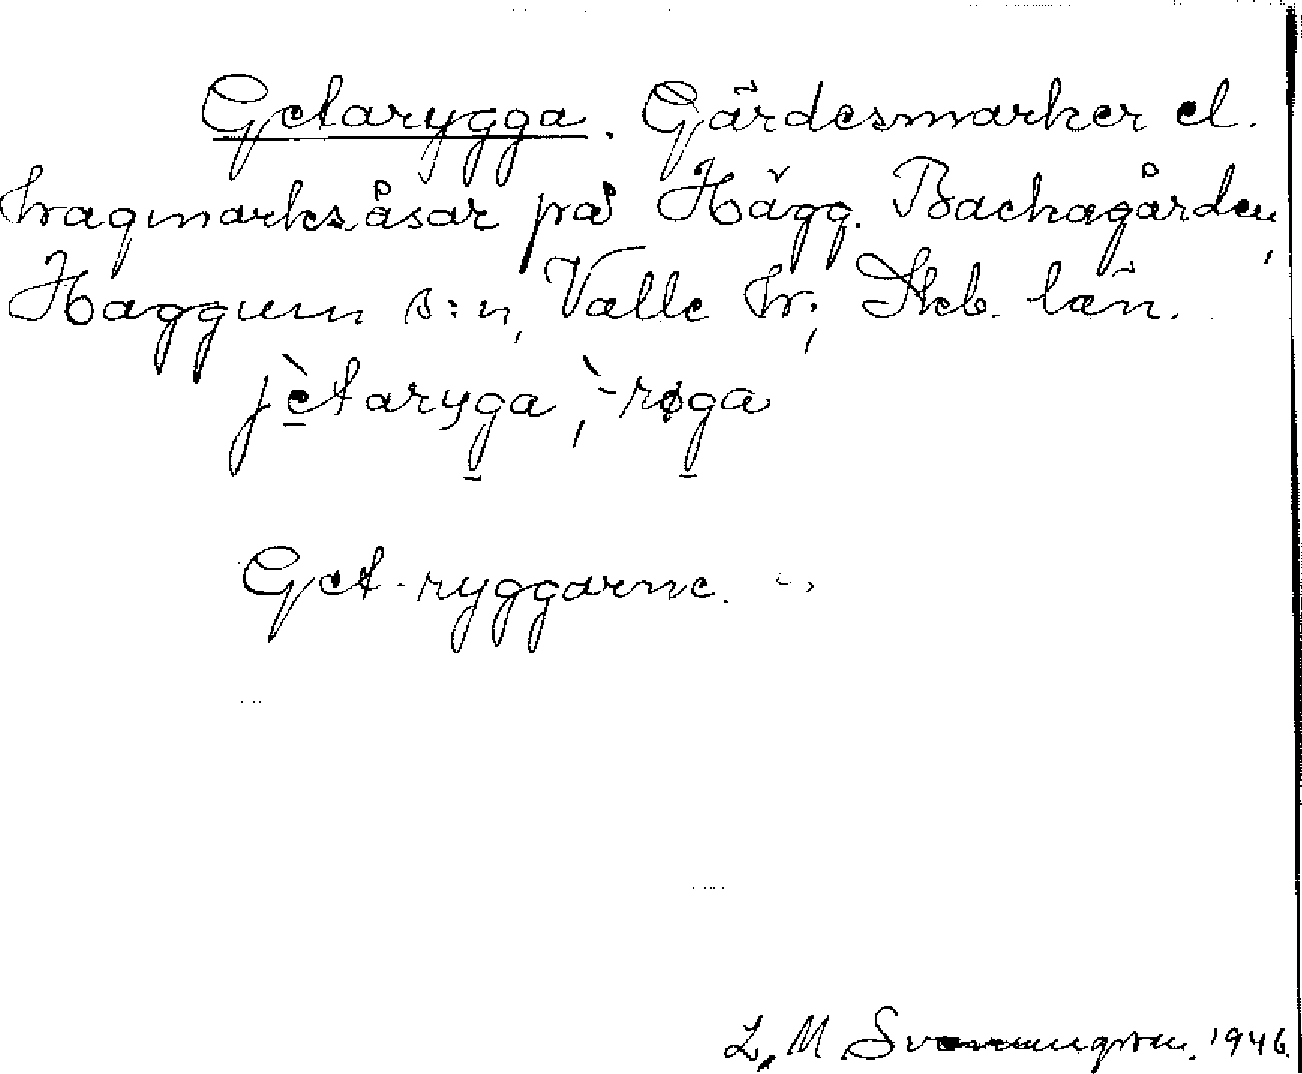 Getarygga. Gärdesmarker el.
hagmarksåsar på Hägg. Backagården,
Häggum s:n, Valle hr; Skb. län.
jètaryga, `-røga
Get-ryggarne.
L, M Svenungson. 1946.